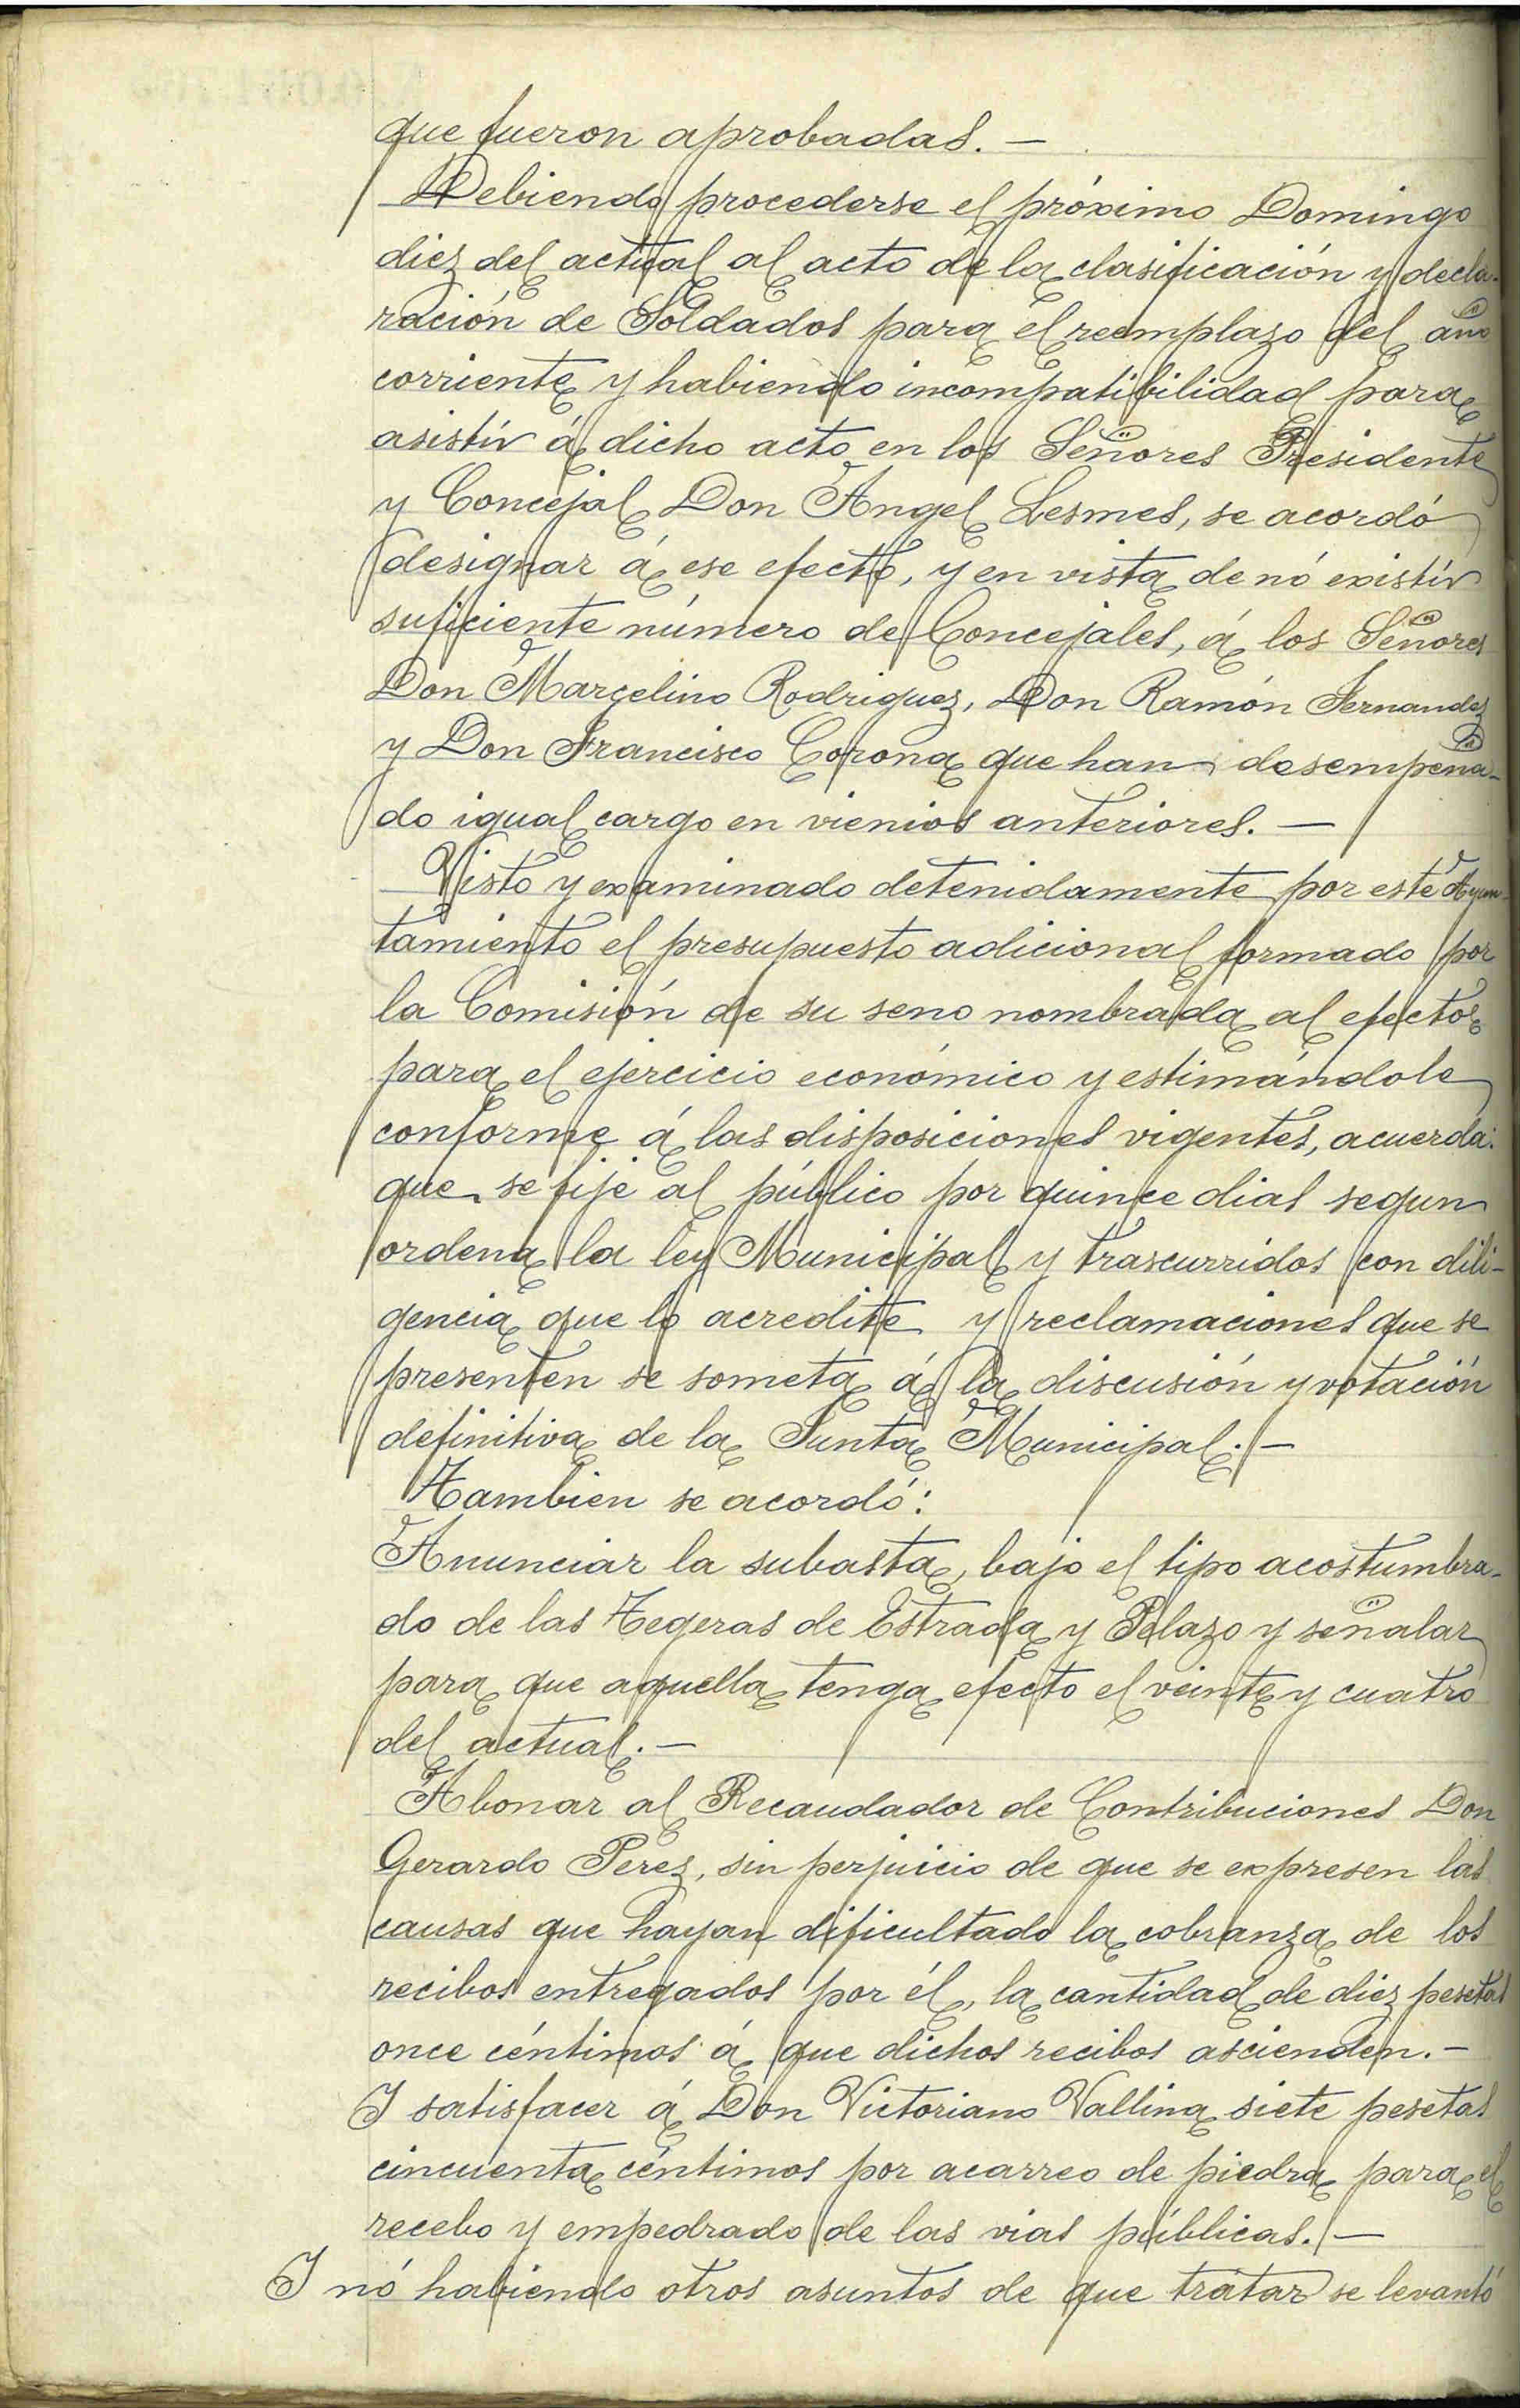 que fueron aprobadas. —
Debiendo procederse el próximo Domingo
diez del actual al acto de la clasificación y decla-
ración de Soldados para el reemplazo del año
corriente y habiendo incompatibilidad para
asistir á dicho acto en los Señores Presidente
y Concejal Don Angel Lesmes, se acordó
designar á ese efecto, y en vista de nó existir
suficiente número de Concejales, á los Señores
Don Marcelino Rodriguez, Don Ramón Fernandez
y Don Francisco Corona que han desempeña-
do igual cargo en vienios anteriores. —
Visto y examinado detenidamente por este Ayun-
tamiento el presupuesto adicional formado por
la Comisión de su seno nombrada al efecto
para el ejercicio económico y estimándole
conforme á las disposiciones vigentes, acuerda:
que se fije al público por quince dias segun
ordena la ley Municipal y trascurridos con dili-
gencia que lo acredite y reclamaciones que se
presenten se someta á la discusión y votación
definitiva de la Junta Municipal. —
Tambien se acordó:
Anunciar la subasta, bajo el tipo acostumbra-
do de las Tegeras de Estrada y Pelazo y señalar
para que aquella tenga efecto el veinte y cuatro
del actual. —
Abonar al Recaudador de Contribuciones Don
Gerardo Perez, sin perjuicio de que se expresen las
causas que hayan dificultado la cobranza de los
recibos entregados por él, la cantidad de diez pesetas
once céntimos á que dichos recibos ascienden. —
I satisfacer á Don Victoriano Vallina siete pesetas
cincuenta céntimos por acarreo de piedra para el
recebo y empedrado de las vias públicas. —
I nó habiendo otros asuntos de que tratar se levantó